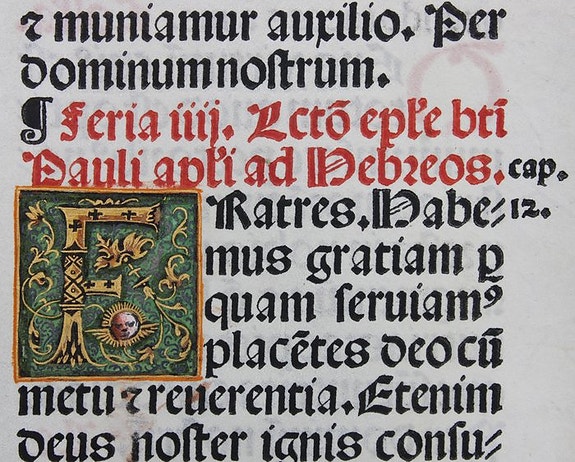 ⁊ muniamur auxilio. Per
dominum nostrum.
¶ Feria iiij. Lctõ epƚe bti̅
Pauli apƚi ad Hebreos. cap.
FRatres. Habe⸗ 12.
mus gratiam ꝑ
quam ſeruiamꝰ
placẽtes deo cũ
metu ⁊ reuerentia. Etenim
deus noſter ignis conſu⸗